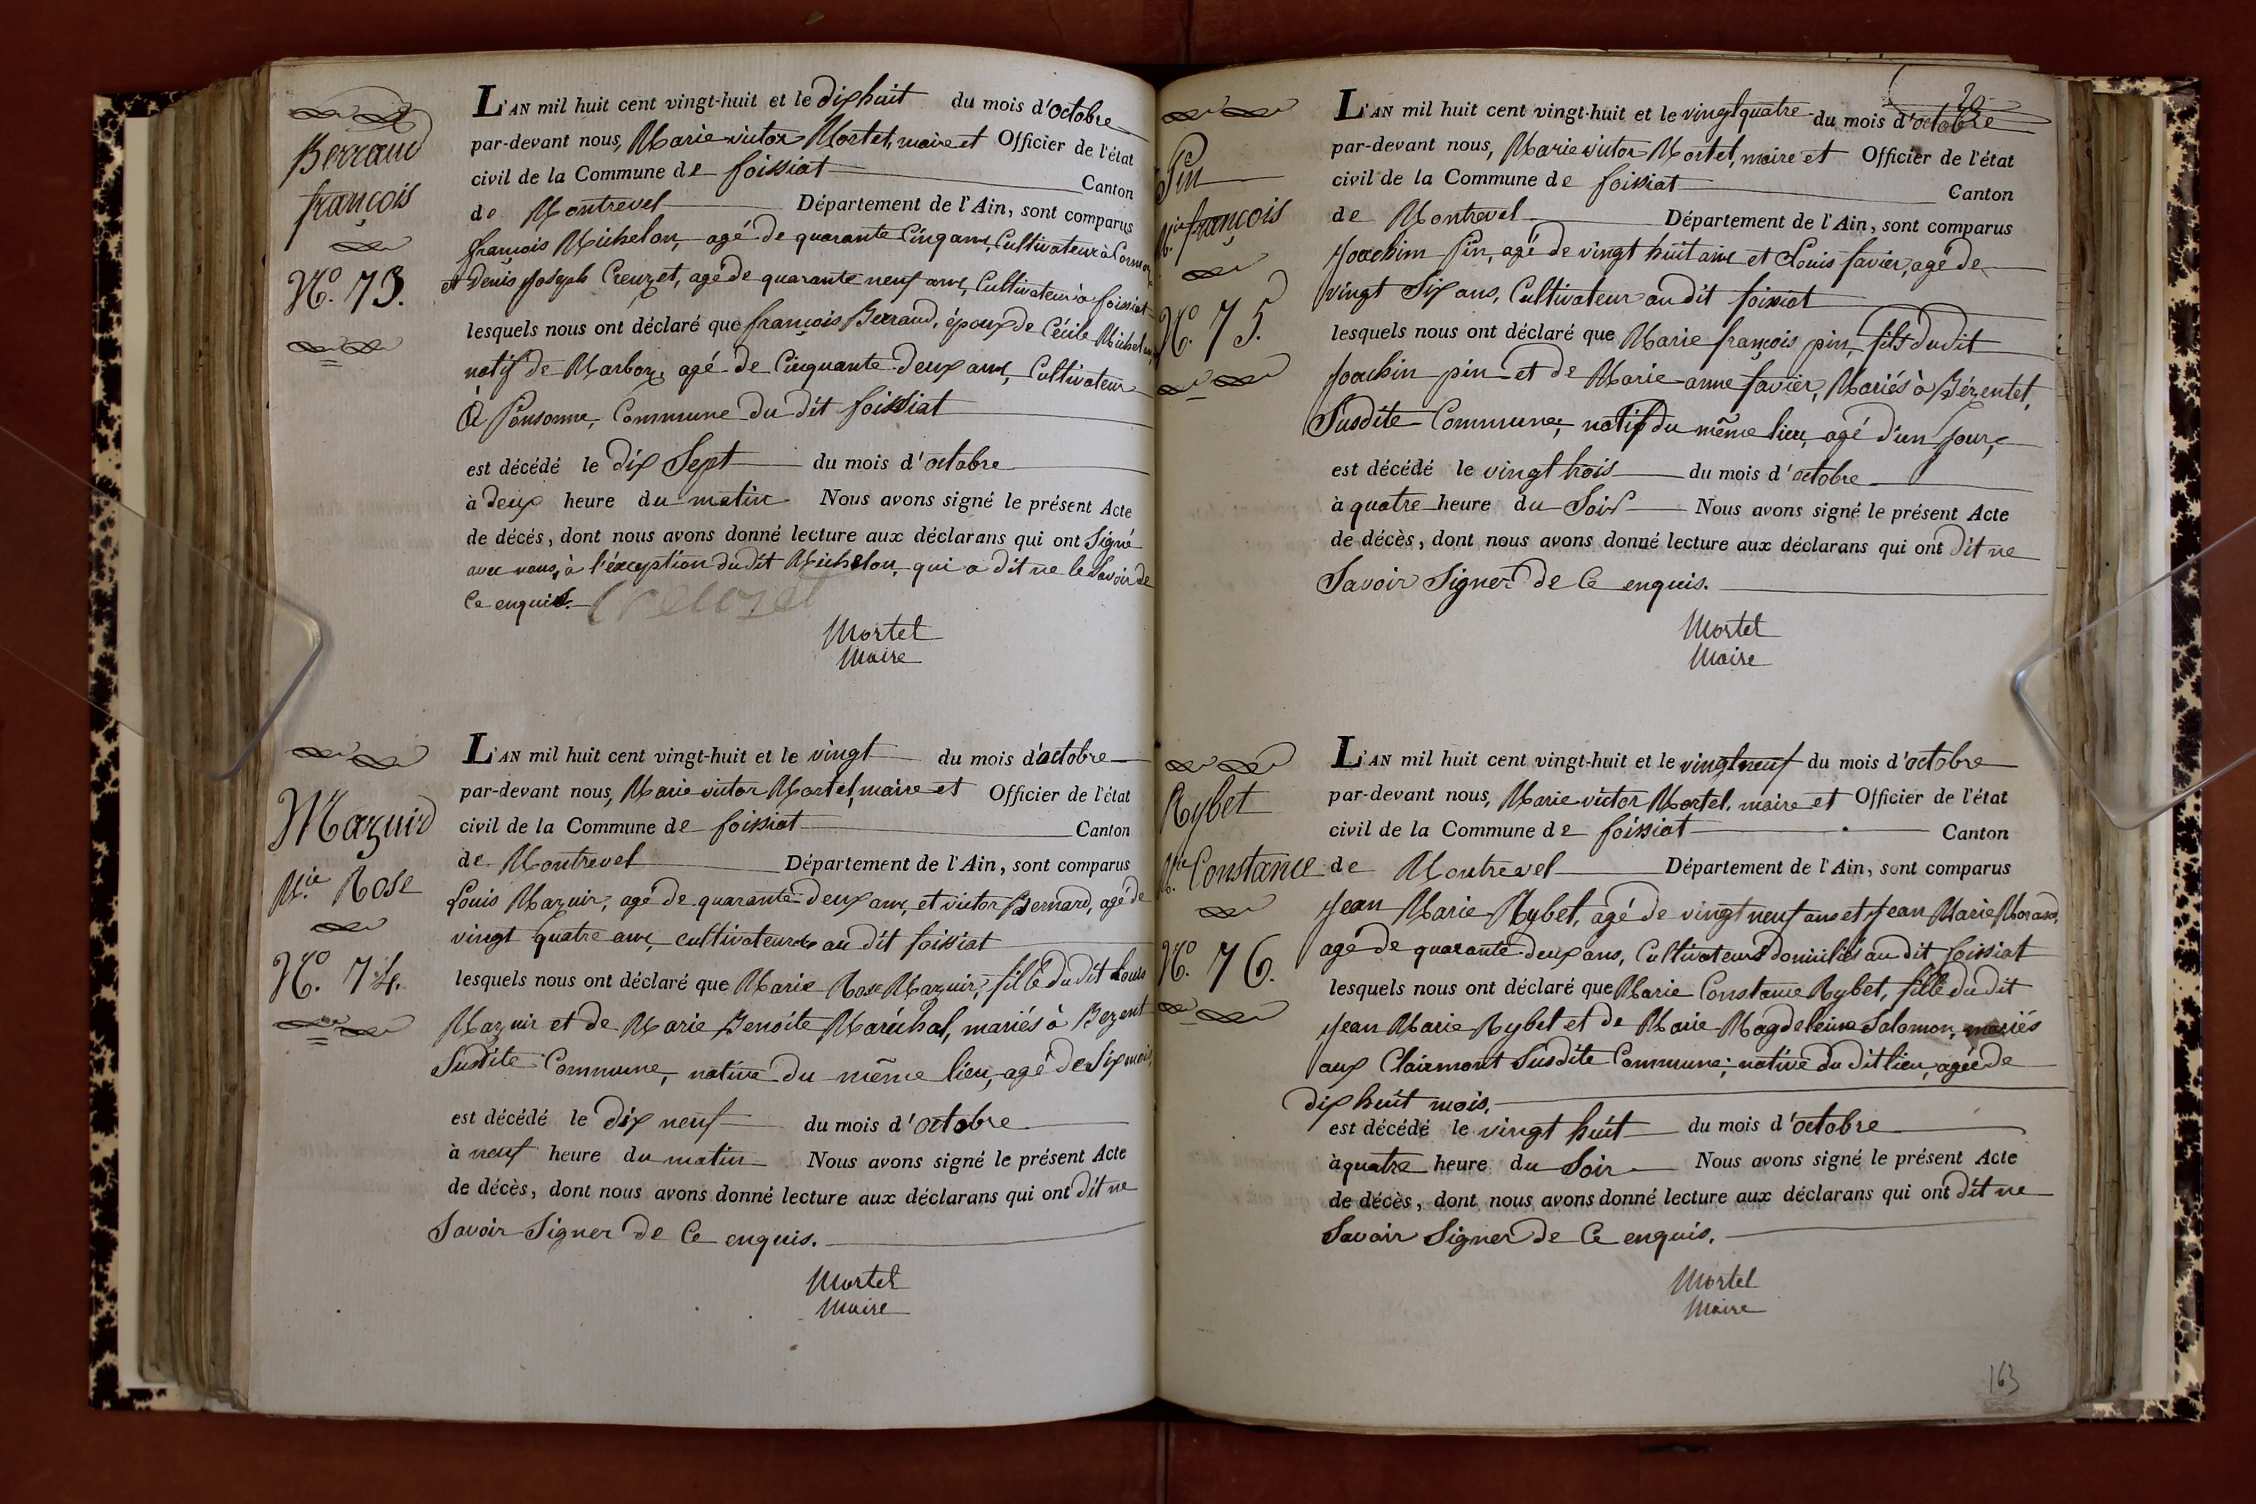 Berraud
françois
N.º 73.
L'AN mil huit cent vingt-huit et le dix huit du mois d'octobre
par-devant nous, Marie victor Mortel, maire et Officier de l'état
civil de la Commune de foissiat Canton
de Montrevel Département de l'Ain, sont comparus
françois Michelon, agé de quarante Cinq ans, Cultivateur à
et Denis Joseph Creuzet, agé de quarante neuf ans, Cultivateur à foissiat
lesquels nous ont déclaré que françois Berraud, époux de Cécile Michelon,
natif de Marboz, agé de Cinquante deux ans, Cultivateur
à Ponsonne, Commune du dit foissiat
est décédé le dix Sept du mois d'octobre
à deux heure du matin Nous avons signé le présent Acte
de décés, dont nous avons donné lecture aux déclarans qui ont Signé
avec nous, à l'éxception du dit Michelon, qui a dit ne le Savoir de
Ce enquis. Creuzet
Mortel
Maire
Mazuir
M.ie Rose
N.º 74.
L'AN mil huit cent vingt-huit et le vingt du mois d'octobre
par-devant nous, Marie victor Mortel, maire et Officier de l'état
civil de la Commune de foissiat Canton
de Montrevel Département de l'Ain, sont comparus
Louis Mazuir, agé de quarante-deux ans, et victor Bernard, agé de
vingt quatre ans, cultivateurs au dit foissiat
lesquels nous ont déclaré que Marie Rose Mazuir, fille du dit Louis
Mazuir et de Marie Benoite Maréchal, mariés à Bezent
Susdite Commune, native du même lieu, agé de Six mois,
est décédé le dix neuf du mois d'octobre
à neuf heure du matin Nous avons signé le présent Acte
de décès, dont nous avons donné lecture aux déclarans qui ont dit ne
Savoir Signer de Ce enquis.
Mortel
Maire
20
Pin
M.ie françois
N.º 75.
L'AN mil huit cent vingt-huit et le vingt quatre du mois d'octobre
par-devant nous, Marie victor Mortel, maire et Officier de l'état
civil de la Commune de foissiat Canton
de Montrevel Département de l'Ain, sont comparus
Joachim Pin, agé de vingt huit ans et Louis favier, agé de
vingt Six ans, Cultivateur au dit foissiat
lesquels nous ont déclaré que Marie françois pin, fils du dit
Joachin pin et de Marie-anne favier, Mariés à Bézentet,
Susdite Commune, natif du même lieu, agé d'un jour,
est décédé le vingt trois du mois d'octobre
à quatre heure du Soir Nous avons signé le présent Acte
de décès, dont nous avons donné lecture aux déclarans qui ont dit ne
Savoir Signer de Ce enquis.
Mortel
Maire
Rybet
M.ie Constance
N.º 76.
L'AN mil huit cent vingt-huit et le vingt neuf du mois d'octobre
par-devant nous, Marie victor Mortel, maire et Officier de l'état
civil de la Commune de foissiat Canton
de Montrevel Département de l'Ain, sont comparus
Jean Marie Rybet, agé de vingt neuf ans et Jean Marie Morand,
agé de quarante-deux ans, Cultivateurs domiciliés au dit foissiat
lesquels nous ont déclaré que Marie Constance Rybet, fille du dit
Jean Marie Rybet et de Marie Magdeleine Salomon, mariés
aux Clairmont Susdite Commune; native du dit lieu, agée de
dix huit mois,
est décédé le vingt huit du mois d'octobre
à quatre heure du Soir Nous avons signé le présent Acte
de décès, dont nous avons donné lecture aux déclarans qui ont dit ne
Savoir Signer de Ce enquis.
Mortel
Maire
163